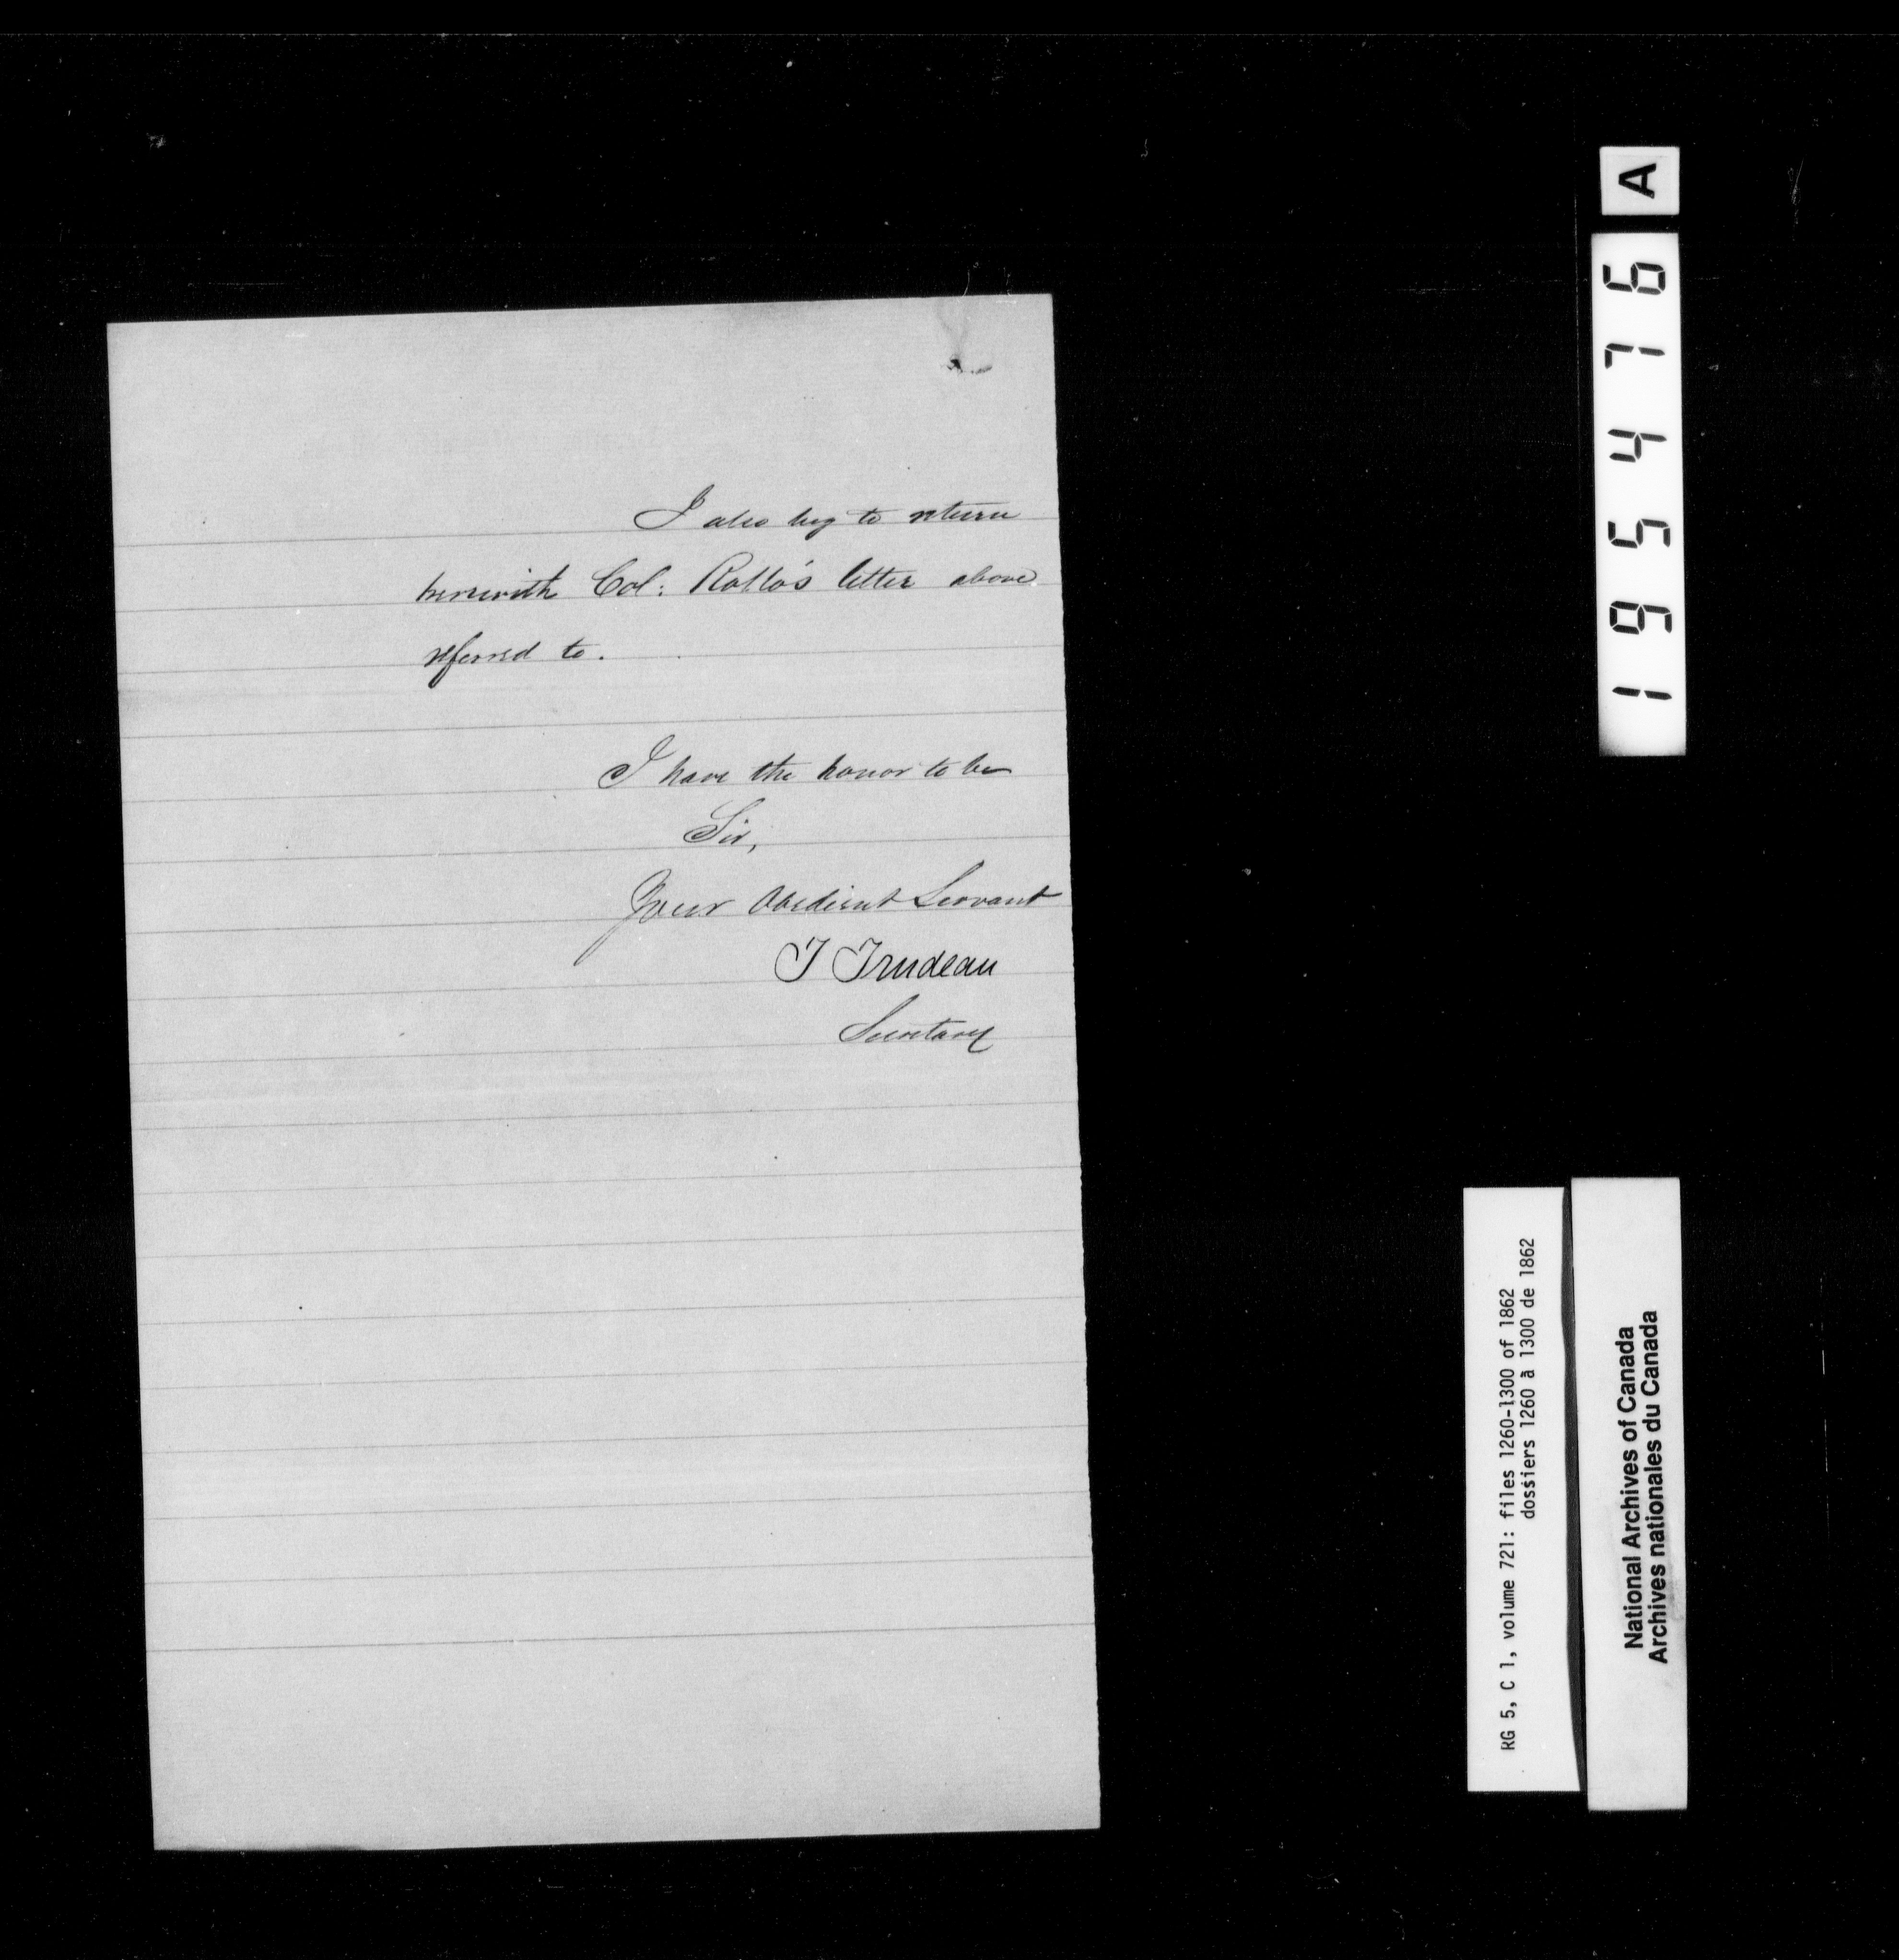 I also beg to return
herewith Col: Rollo's letter above
referred to.
I have the honor to be
Sir,
Your Obedient Servant
T Trudeau
Secretary
A
195476
RG 5, C 1, volume 721: files 1260-1300 of 1862
dossiers 1260 à 1300 de 1862
National Archives of Canada
Archives nationales du Canada